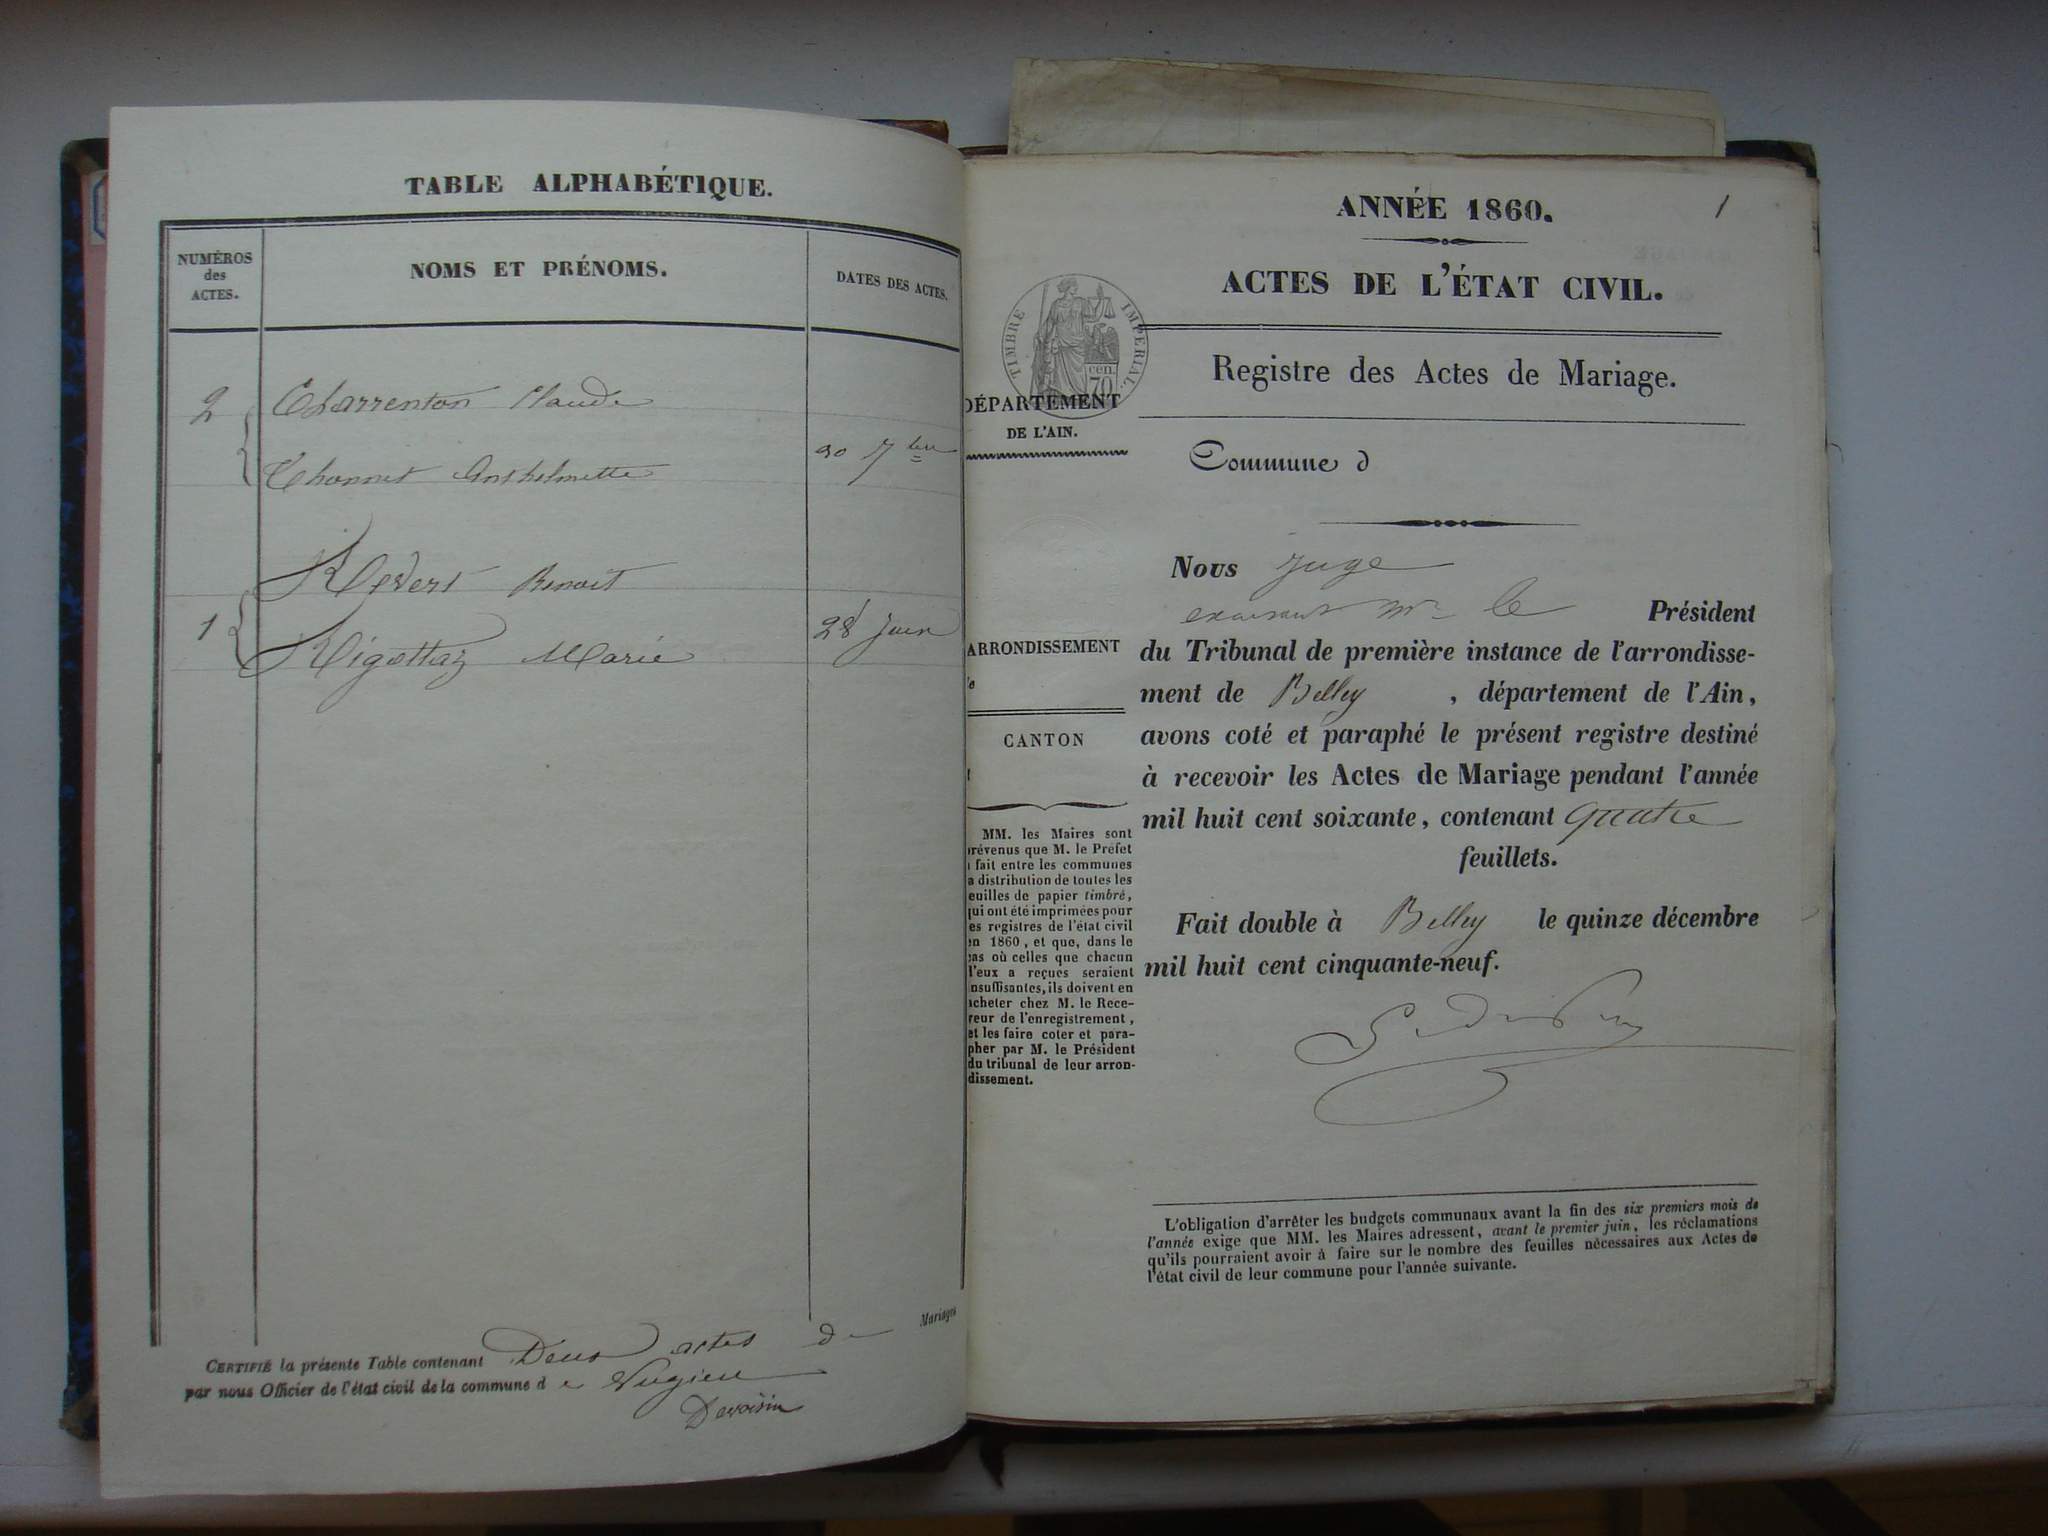 TABLE ALPHABÉTIQUE.
NUMÉROS
des
ACTES.
NOMS ET PRÉNOMS.
DATES DES ACTES.
2
Charrenton Claude
30 7bre
Chonnet Anthelmette
Revert Benoit
1
28 juin
Rigottaz Marie
CERTIFIÉ la présente Table contenant Deux actes de Mariages
par nous Officier de l'état civil de la commune de Vugieu
Devoisin
ANNÉE 1860.
1
ACTES DE L'ÉTAT CIVIL.
TIMBRE IMPÉRIAL.
cen.
70
Registre des Actes de Mariage.
DÉPARTEMENT
DE L'AIN.
Commune d
Nous juge
Mr le Président
du Tribunal de première instance de l'arrondisse-
ment de Belley , département de l'Ain,
avons coté et paraphé le présent registre destiné
à recevoir les Actes de Mariage pendant l'année
mil huit cent soixante, contenant quatre
feuillets.
Fait double à Belley le quinze décembre
mil huit cent cinquante-neuf.
ARRONDISSEMENT
CANTON
MM. les Maires sont
révenus que M. le Préfet
fait entre les communes
a distribution de toutes les
euilles de papier timbré,
qui ont été imprimées pour
es registres de l'état civil
en 1860, et que, dans le
cas où celles que chacun
l'eux a reçues seraient
nsuffisantes, ils doivent en
acheter chez M. le Rece-
veur de l'enregistrement,
et les faire coter et para-
pher par M. le Président
du tribunal de leur arron-
dissement.
L'obligation d'arrêter les budgets communaux avant la fin des six premiers mois de
l'année exige que MM. les Maires adressent, avant le premier juin, les réclamations
qu'ils pourraient avoir à faire sur le nombre des feuilles nécessaires aux Actes de
l'état civil de leur commune pour l'année suivante.